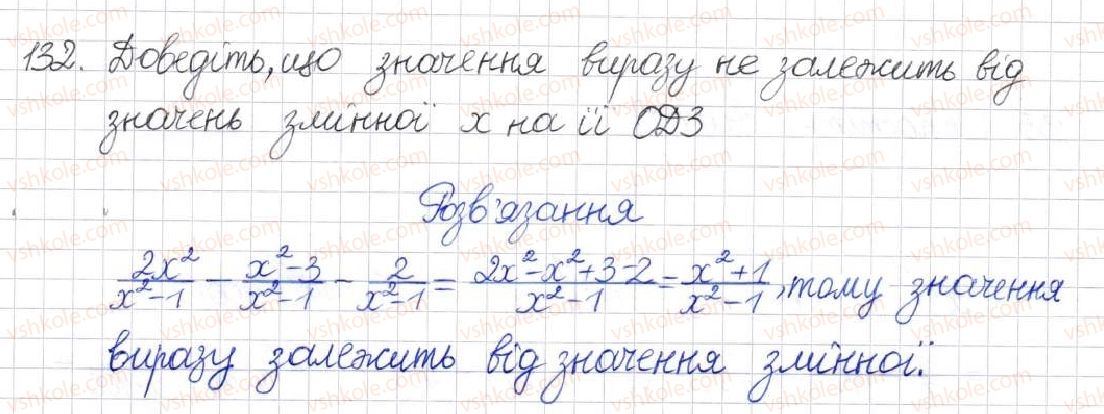 132. Доведіть, що значення виразу не залежить від
значень змінної x на її ОДЗ
Розв'язання
2x²/(x²-1) - (x²-3)/(x²-1) - 2/(x²-1) = (2x²-x²+3-2)/(x²-1) = (x²+1)/(x²-1), тому значення
виразу залежить від значення змінної.